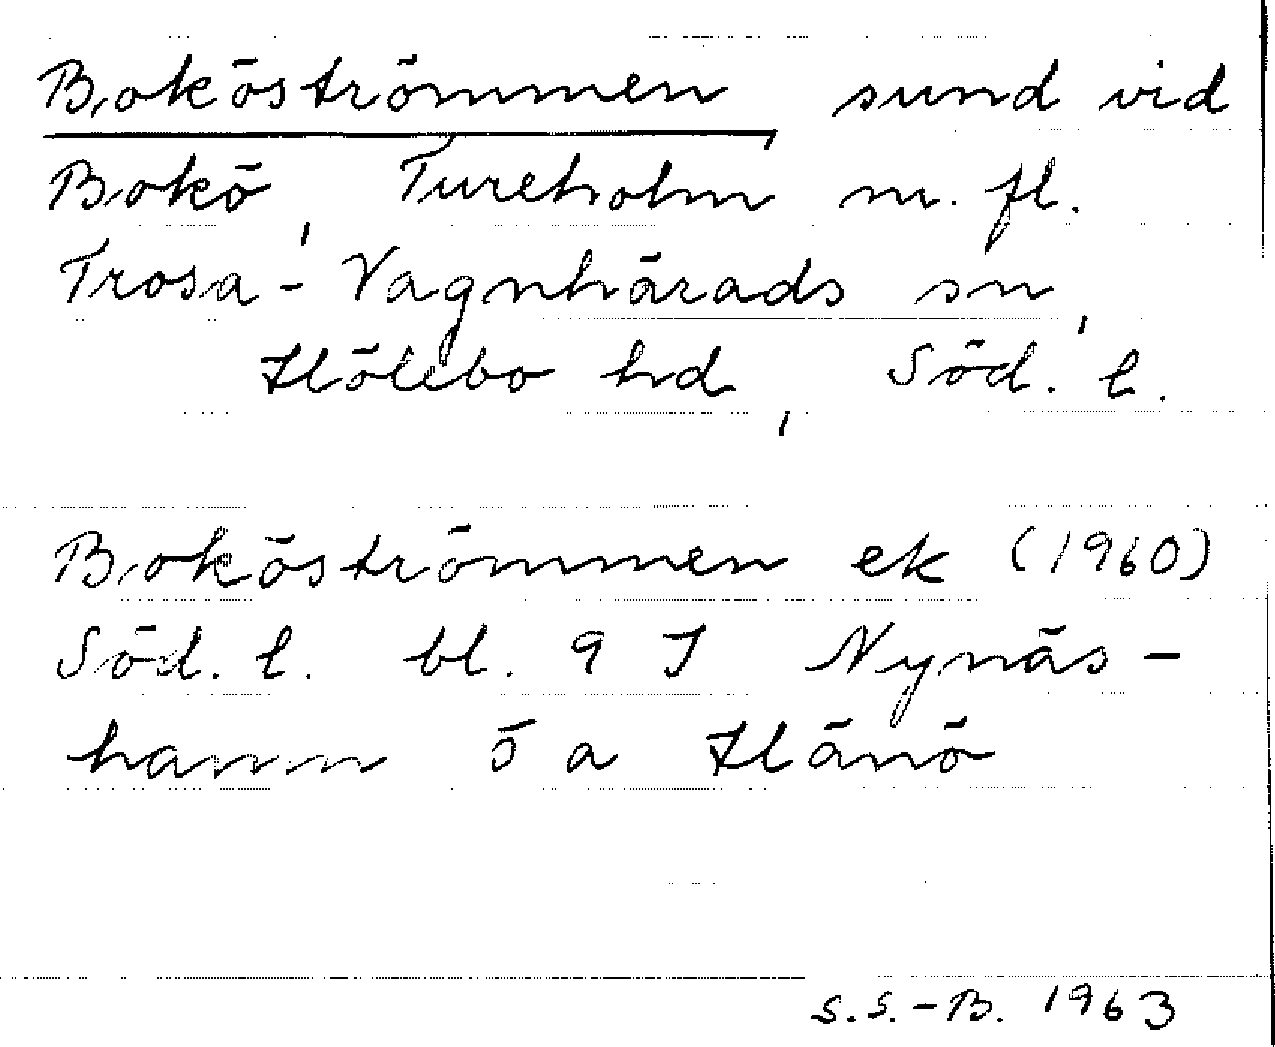 Boköströmmen, sund vid
Bokö, Tureholm m. fl.
Trosa-Vagnhärads sn,
Hölebo hd, Söd. l.
Boköströmmen ek (1960)
Söd. l. bl. 9 J Nynäs-
hamn ö a Hånö
S.S.-B. 1963